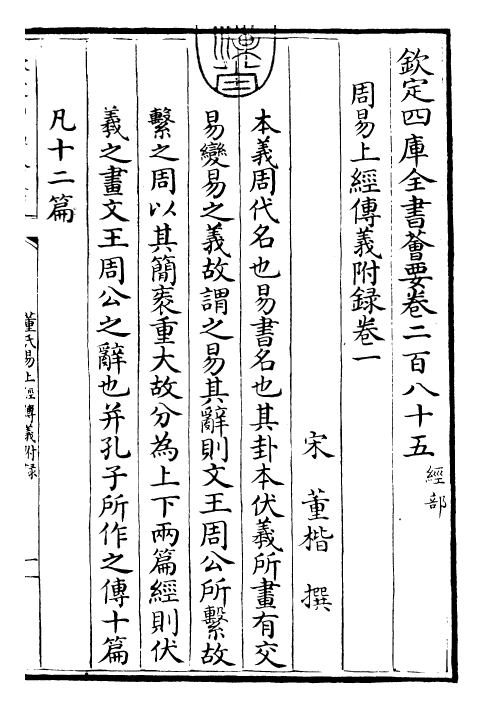 欽定四庫全書薈要卷二百八十五 經部
周易上經傳義附録卷一
宋 董楷 撰
本義周代名也易書名也其卦本伏義所畫有交
易變易之義故謂之易其辭則文王周公所繫故
繫之周以其簡袠重大故分為上下兩篇經則伏
義之畫文王周公之辭也并孔子所作之傳十篇
凡十二篇
董氏易上經傳義附录
一